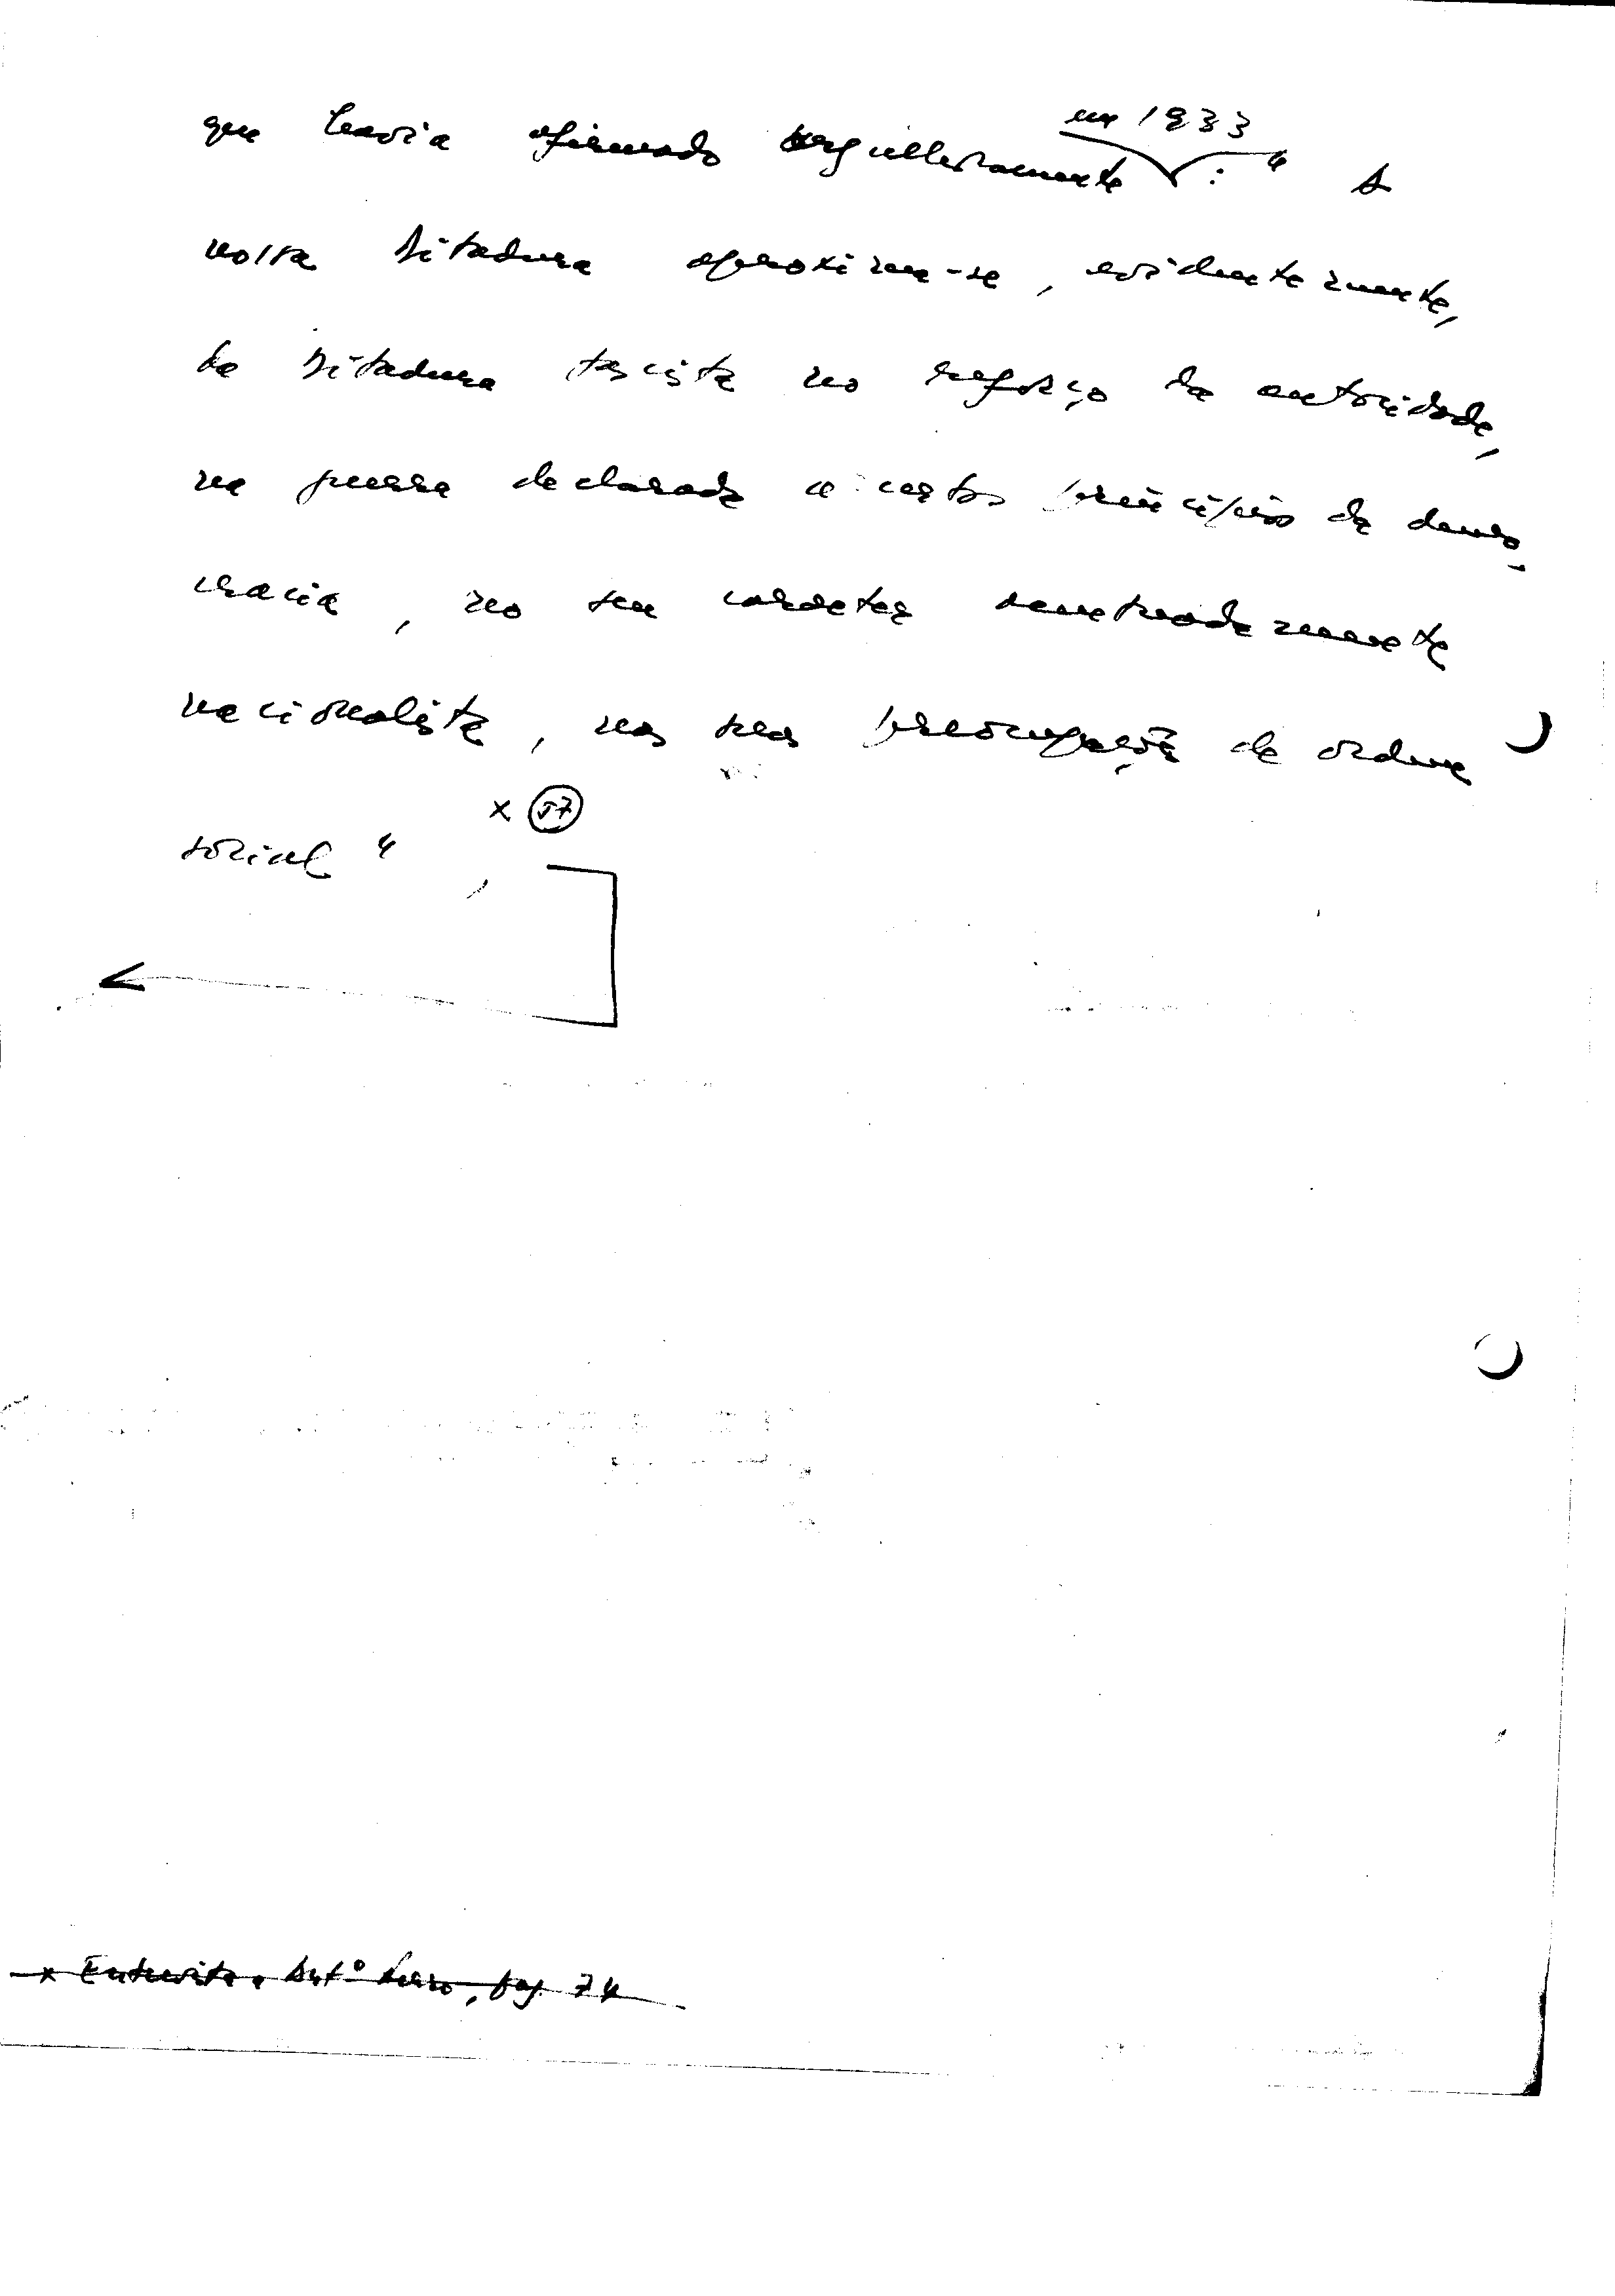 em 1933
que havia afirmado orgulhosamente : " A
nossa Ditadura aproxima-se, evidentemente,
da Ditadura fascista no reforço da autoridade,
na guerra declarada a certos princípios da demo-
cracia, no seu carácter acentuadamente
nacionalista, nas suas preocupações de ordem
social ",
x 57
x Entrevista a Antº Ferro, pag. 74